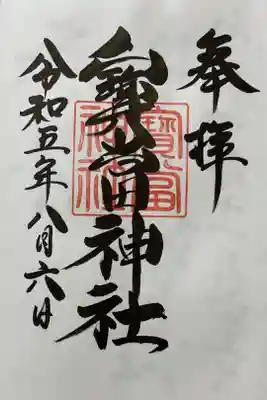 奉拝
寳當神社
令和五年八月六日